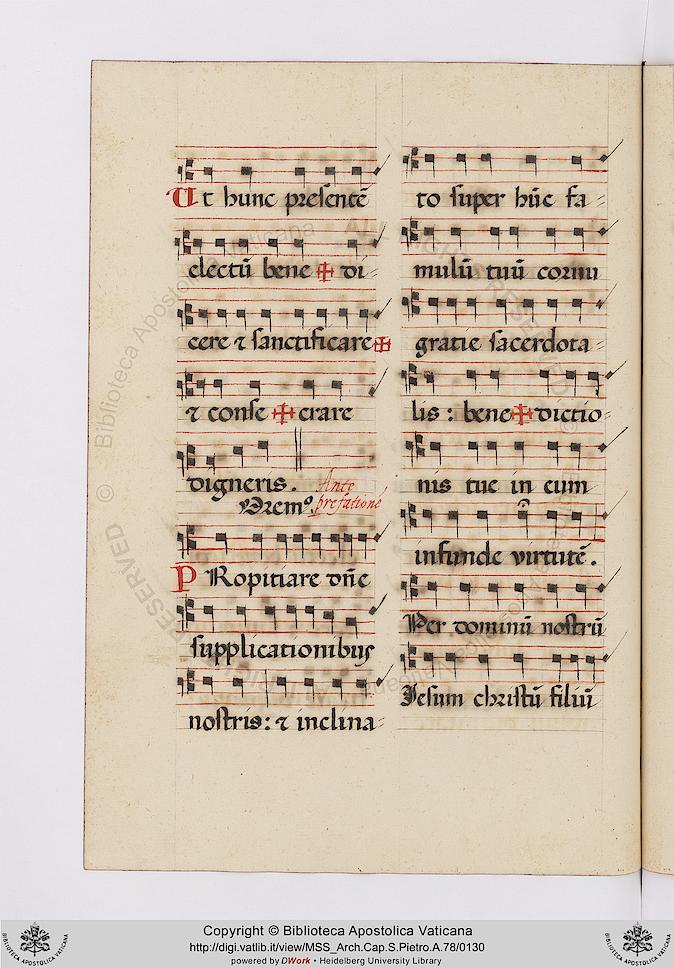 Ut hunc presentē
electū bene ✠ di=
cere ⁊ sanctificare ✠
⁊ conse ✠ crare
digneris.
Oremꝰ. Ante
prefationē
PRopitiare dn̄e
supplicationibus
nostris: ⁊ inclina=
to super hūc fa=
mulū tuū cornu
gratie sacerdota=
lis: bene ✠ dictio=
nis tue in eum
infunde virtutē.
Per dominū nostrū
Jesum christū filiū
© Biblioteca Apostolica Vaticana
ALL RIGHTS RESERVED
Copyright © Biblioteca Apostolica Vaticana
http://digi.vatlib.it/view/MSS_Arch.Cap.S.Pietro.A.78/0130
powered by DWork • Heidelberg University Library
BIBLIOTECA APOSTOLICA VATICANA
BIBLIOTECA APOSTOLICA VATICANA